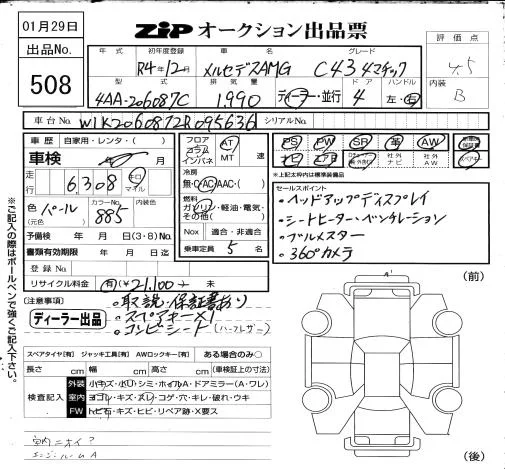 01月29日
ZIP オークション出品票
出品No.
508
年式 初年度登録 車名 グレード
R4年12月 メルセデスAMG C43 4マチック
評価点
4.5
型式 排気量 ドア ハンドル
4AA-206087C 1,990 ディーラー・並行 4 左・右
内装
B
車台No. W1K2060872R095636 シリアルNo.
車歴 自家用・レンタ・( )
車検 年 月
走行 6,308 キロ マイル
色 パール カラーNo. 885 内装色
(元色)
予備検 年 月 日(3・8)No.
書類有効期限 年 月 日迄
登録No.
リサイクル料金 有 ¥21,100 未
フロア コラム インパネ AT MT 速
冷房
無・AC・AAC・( )
燃料
ガソリン・軽油・電気・その他( )
Nox 適合・非適合
乗車定員 5 名
PS PW SR 革 AW
ナビ エアB 社外ナビ 社外AW
*上記太枠内は標準装備品
セールスポイント
・ヘッドアップディスプレイ
・シートヒーター・ベンチレーション
・ブルメスター
・360°カメラ
(注意事項)
ディーラー出品
・取説・保証書あり
・スペアキー×1
・コンビシート(ハーフレザー)
スペアタイヤ[有] ジャッキ工具[有] AWロックキー[有] ある場合のみ○
長さ cm 幅 cm 高さ cm (車検証上の寸法)
検査記入
外装 小キズ・小U・シミ・ホイルA・ドアミラー(A・ワレ)
室内 ヨゴレ・キズ・スレ・コゲ・穴・キレ・破れ・ウキ
FW トビ石・キズ・ヒビ・リペア跡・X要ス
室内ニオイ?
エンジンルームA
(前)
(後)
※ご記入の際はボールペンで強くご記入下さい。